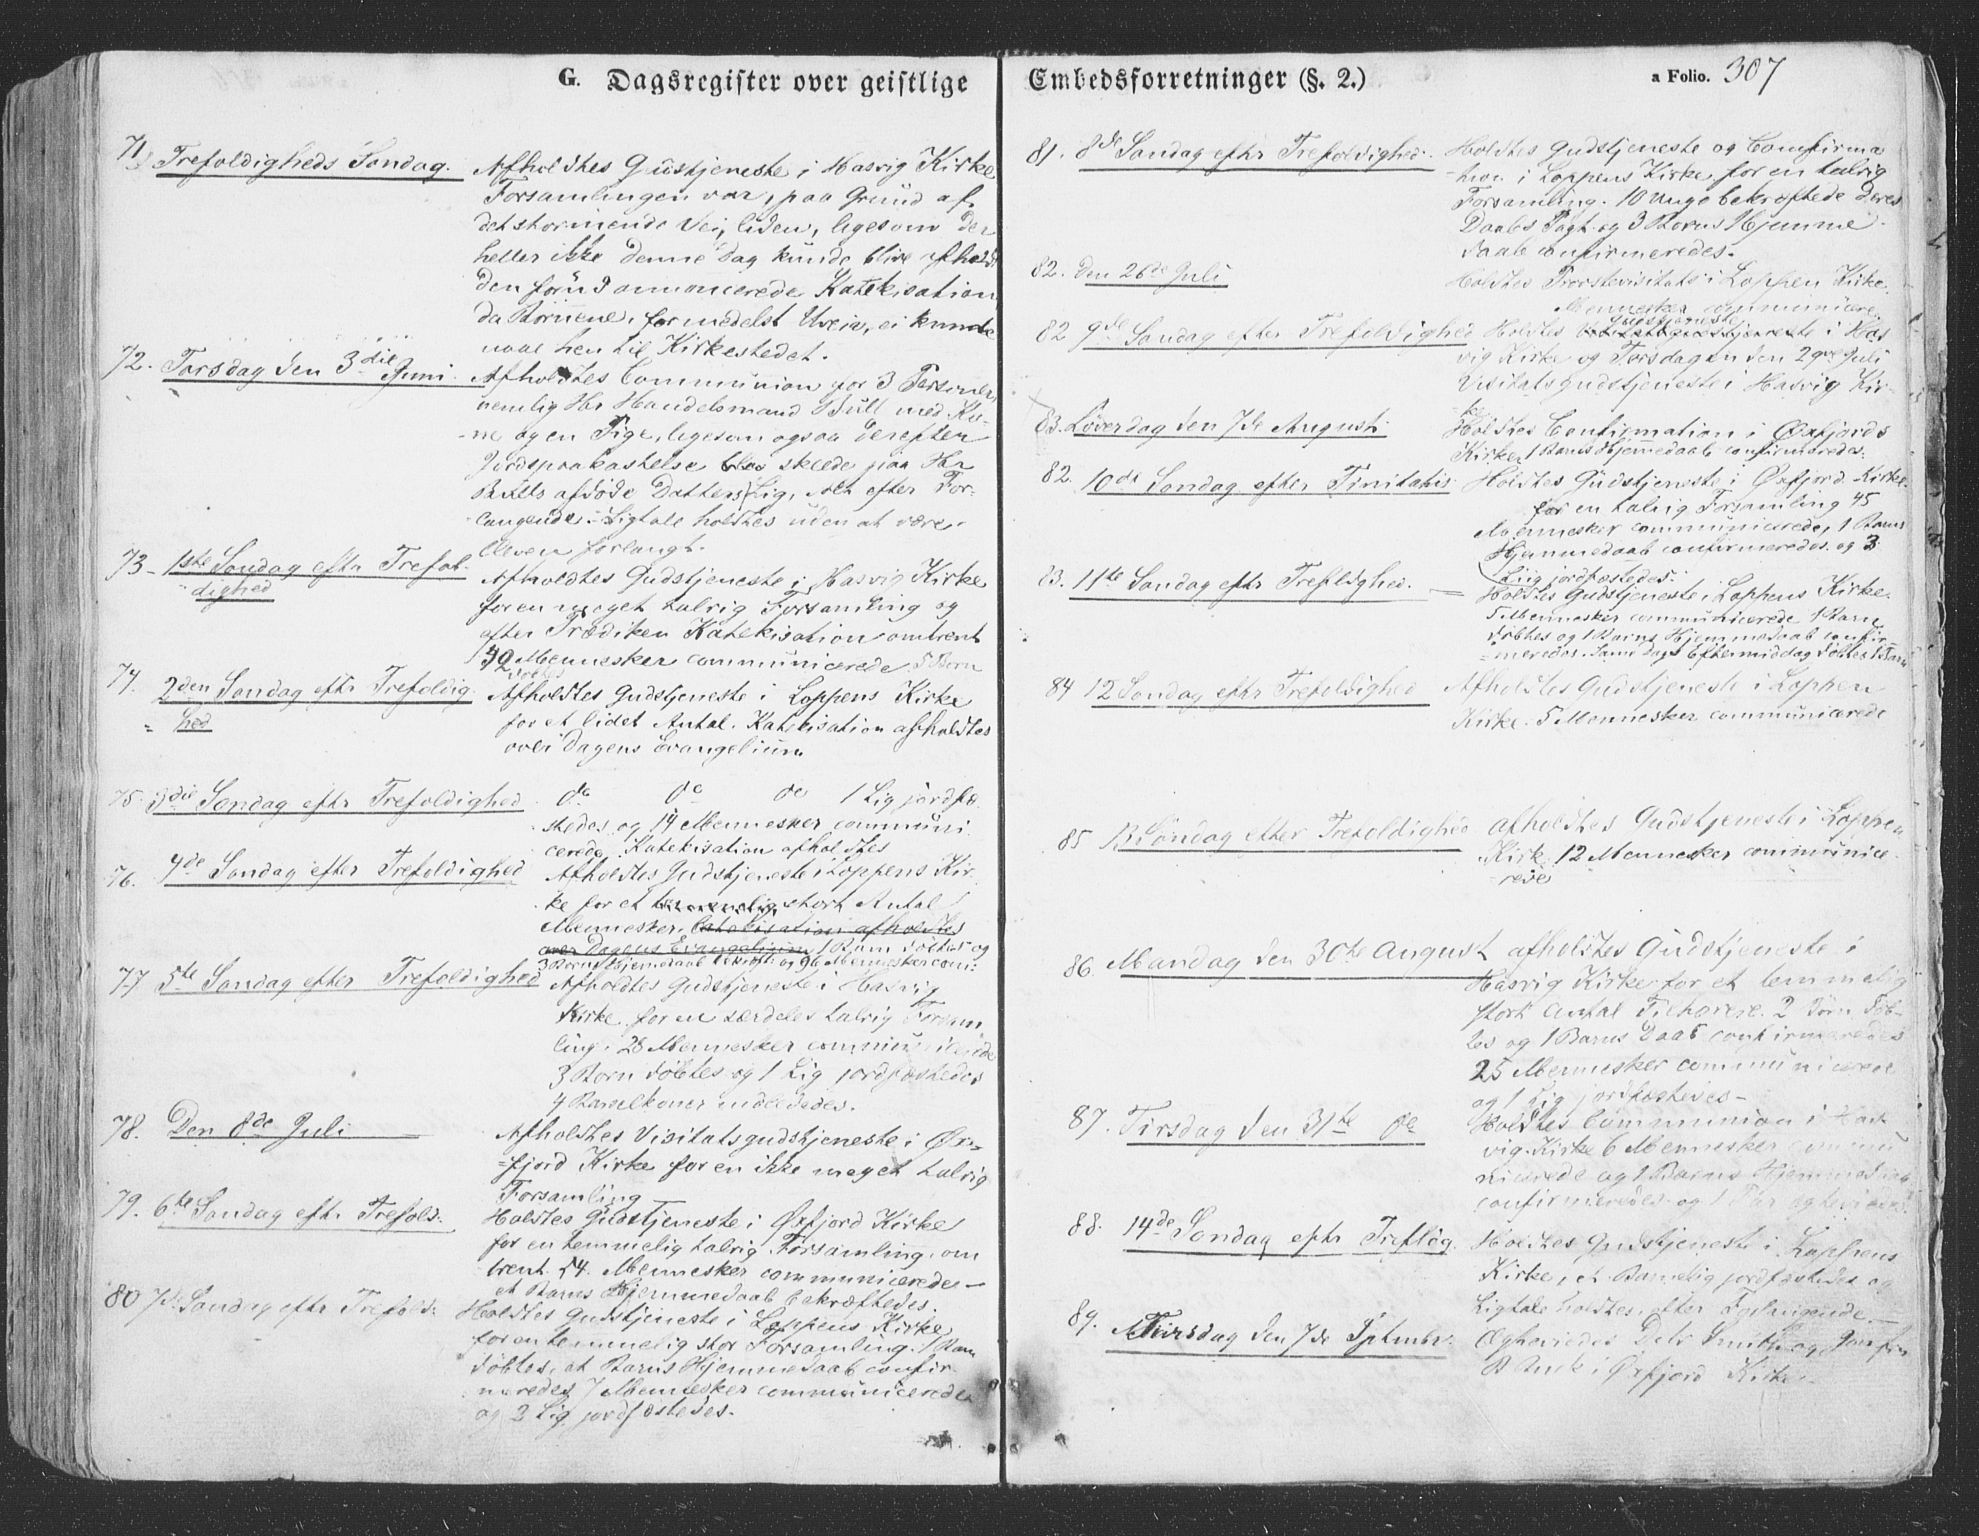 G. Dagsregister over geistlige
71. Trefoldigheds Søndag.
Afholdtes Gudstjeneste i Hasvig Kirke
Forsamlingen var, paa Grund af
det stormende Vei, liden, ligesom der
heller ikke denne Dag kunde blive afholdt
den forud annoncerede Katekisation
da Børnene, formedelst Uveir, ei kunde
naae hen til Kirkestedet.
72. Torsdag den 3die Juni.
Afholdtes Communion for 3 Personer,
nemlig Hr Handelsmand Bull med Ko-
ne og en Pige, ligesom ogsaa derefter
Jordspaakastelse blev skeede paa Hr
afdøde Datters Lig, efter For-
langende. Ligtale holdtes uden at være
bleven forlangt.
73. 1ste Søndag eftr Trefol-
dighed
Afholdtes Gudstjeneste i Hasvig Kirke
for en meget talrig Forsamling og
efter Prædiken Katekisation omtrent
Mennesker communicerede 5 Børn
døbtes
74. 2den Søndag eftr Trefoldig-
hed
Afholdtes Gudstjeneste i Loppens Kirke
for et lidet Antal. Katekisation afholdtes
over Dagens Evangelium
75. 3die Søndag eftr Trefoldighed
do do do 1 Lig jordfæ-
stedes og 14 Mennesker communi-
cerede. Katekisation afholdtes
76. 4de Søndag efter Trefoldighed
Afholdtes Gudstjeneste i Loppens Kir-
ke for et temmelig stort Antal
Mennesker. Catekisation afholdtes
over Dagens Evangelium 1 Barn døbtes og
3 Børns Hjemmedaab bekræft: og 96 Mennesker com:
77. 5te Søndag efter Trefoldighed
Afholdtes Gudstjeneste i Hasvig
Kirke for en særdeles talrig Forsam-
ling. 28 Mennesker communicerede
3 Børn døbtes og 1 Lig jordfæstedes
4 Barselkoner indledes.
78. Den 8de Juli
Afholdtes Visitatsgudstjeneste i Øx-
fjord Kirke for en ikke meget talrig
Forsamling
79. 6te Søndag eftr Trefold:
Holdtes Gudstjeneste i Øxfjord Kirke
for en temmelig talrig Forsamling, om
trent 54 Mennesker communicerede
et Barns Hjemmedaab bekræftedes.
80 7de Søndag eftr Trefold:
Holdtes Gudstjeneste i Loppens Kirke
for en temmelig stor Forsamling. 1 Barn
døbtes, et Barns Hjemmedaab confir
meredes 7 Mennesker communicerede
og 2 Lig jordfæstedes.
Embedsforretninger (§. 2.)
a Folio. 307
81. 8de Søndag eftr Trefoldighed.
Holdtes Gudstjeneste og Confirma
tion i Loppens Kirke for en talrig
Forsamling. 10 Unge bekræftede deres
Daabs Pagt og 3 Børns Hjemme-
daab confirmeredes.
82. Den 26de Juli
Holdtes Provstevisitats i Loppen Kirke
Mennesker communicere.
82 9de Søndag efter Trefoldighed
Gudstjeneste
Holdtes i Has
vig Kirke og Torsdagen den 29de Juli
Visitatsgudstjeneste i Hasvig Kir-
ke
83. Løverdag den 7de August
Holdtes Confirmation i Øxfjords
Kirke, 1 Barns Hjemmedaab confirmeredes.
82. 10de Søndag efter Tinitatis
Holdtes Gudstjeneste i Øxfjord Kirke
for en talrig Forsamling 45
Mennesker communicerede, 1 Barns
Hjemmedaab confirmeredes og 3
Liig jordfæstedes.
83. 11te Søndag eftr Trefoldighed.
Holdtes Gudstjeneste i Loppens Kirke.
5 Mennesker communicerede 1 Barn
døbtes og 1 Barns Hjemmedaab confir-
meredes. Samme dags Eftermiddag døbtes 1 Barn
84 12 Søndag eftr Trefoldighed
Afholdtes Gudstjeneste i Loppen
Kirke. 5 Mennesker communicerede
85 13 Søndag efter Trefoldighed
afholdtes Gudstjeneste i Loppen
Kirk. 12 Mennesker communice-
rede
86. Mandag den 30te August
afholdtes Gudstjeneste i
Hasvig Kirke for et temmelig
stort Antal Tilhørere. 2 Børn døb-
tes og 1 Barns Daab confirmeredes
25 Mennesker communicerede
og 1 Lig jordfæstedes
87. Tirsdag den 31te do
Holdtes Communion i Has-
vig Kirke 6 Mennesker commu
nicerede og 1 Barns Hjemmedaab
confirmeredes og 1 Par ægteviedes.
88. 14de Søndag eftr Trefldg.
Holdtes Gudstjeneste i Loppens
Kirke, et Barnelig jordfæstedes og
Ligtale holdtes efter Forlangende.
89. Tirsdag den 7de Sptmbr.
Ægteviedes Smith og Jomfru
i Øxfjord Kirke.